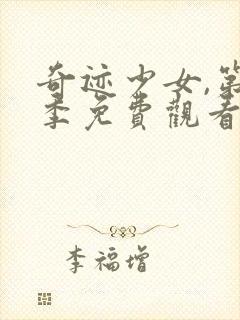 奇迹少女,第
季免費觀看
李福增